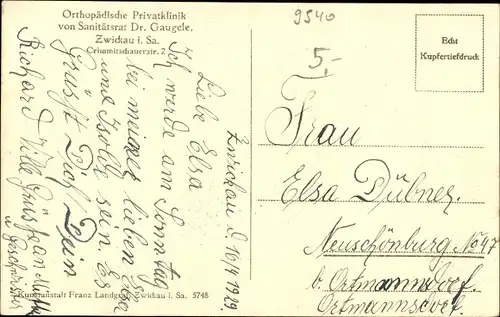 Orthopädische Privatklinik
von Sanitätsrat Dr. Gaugele.
Zwickau i. Sa.
Crimmitschauerstr. 2
9540
5,-
Echt
Kupfertiefdruck
Zwickau d. 16/4 1929.
Liebe Elsa
Ich werde am Sonntag
bei meiner lieben Elsa
und Isolde sein. Es
Grüßt Dich Dein
Richard Viele Grüße an Mutter
u Geschwister
Frau
Elsa Dübner.
Neuschönburg No 47
b. Ortmannsdorf.
Ortmannsdorf.
Kunstanstalt Franz Landgraf, Zwickau i. Sa. 5748